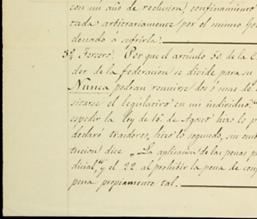 con un año de reclusion, confinamiento
cada arbitrariamente por el mismo
denado á sufrirla.
3º Tercero: Porque el artículo 50 de la C
der de la federacion se divide para su
Nunca podran reunirse dos ó mas de
sitarse el legislativo en un individuo.
espedir la Ley de 16 de Agosto hizo lo p
declaró traidores, hizo lo segundo, su
tucion dice "La aplicacion de las penas p
dicial" y el 22 al prohibir la pena de con
pena propiamente tal.